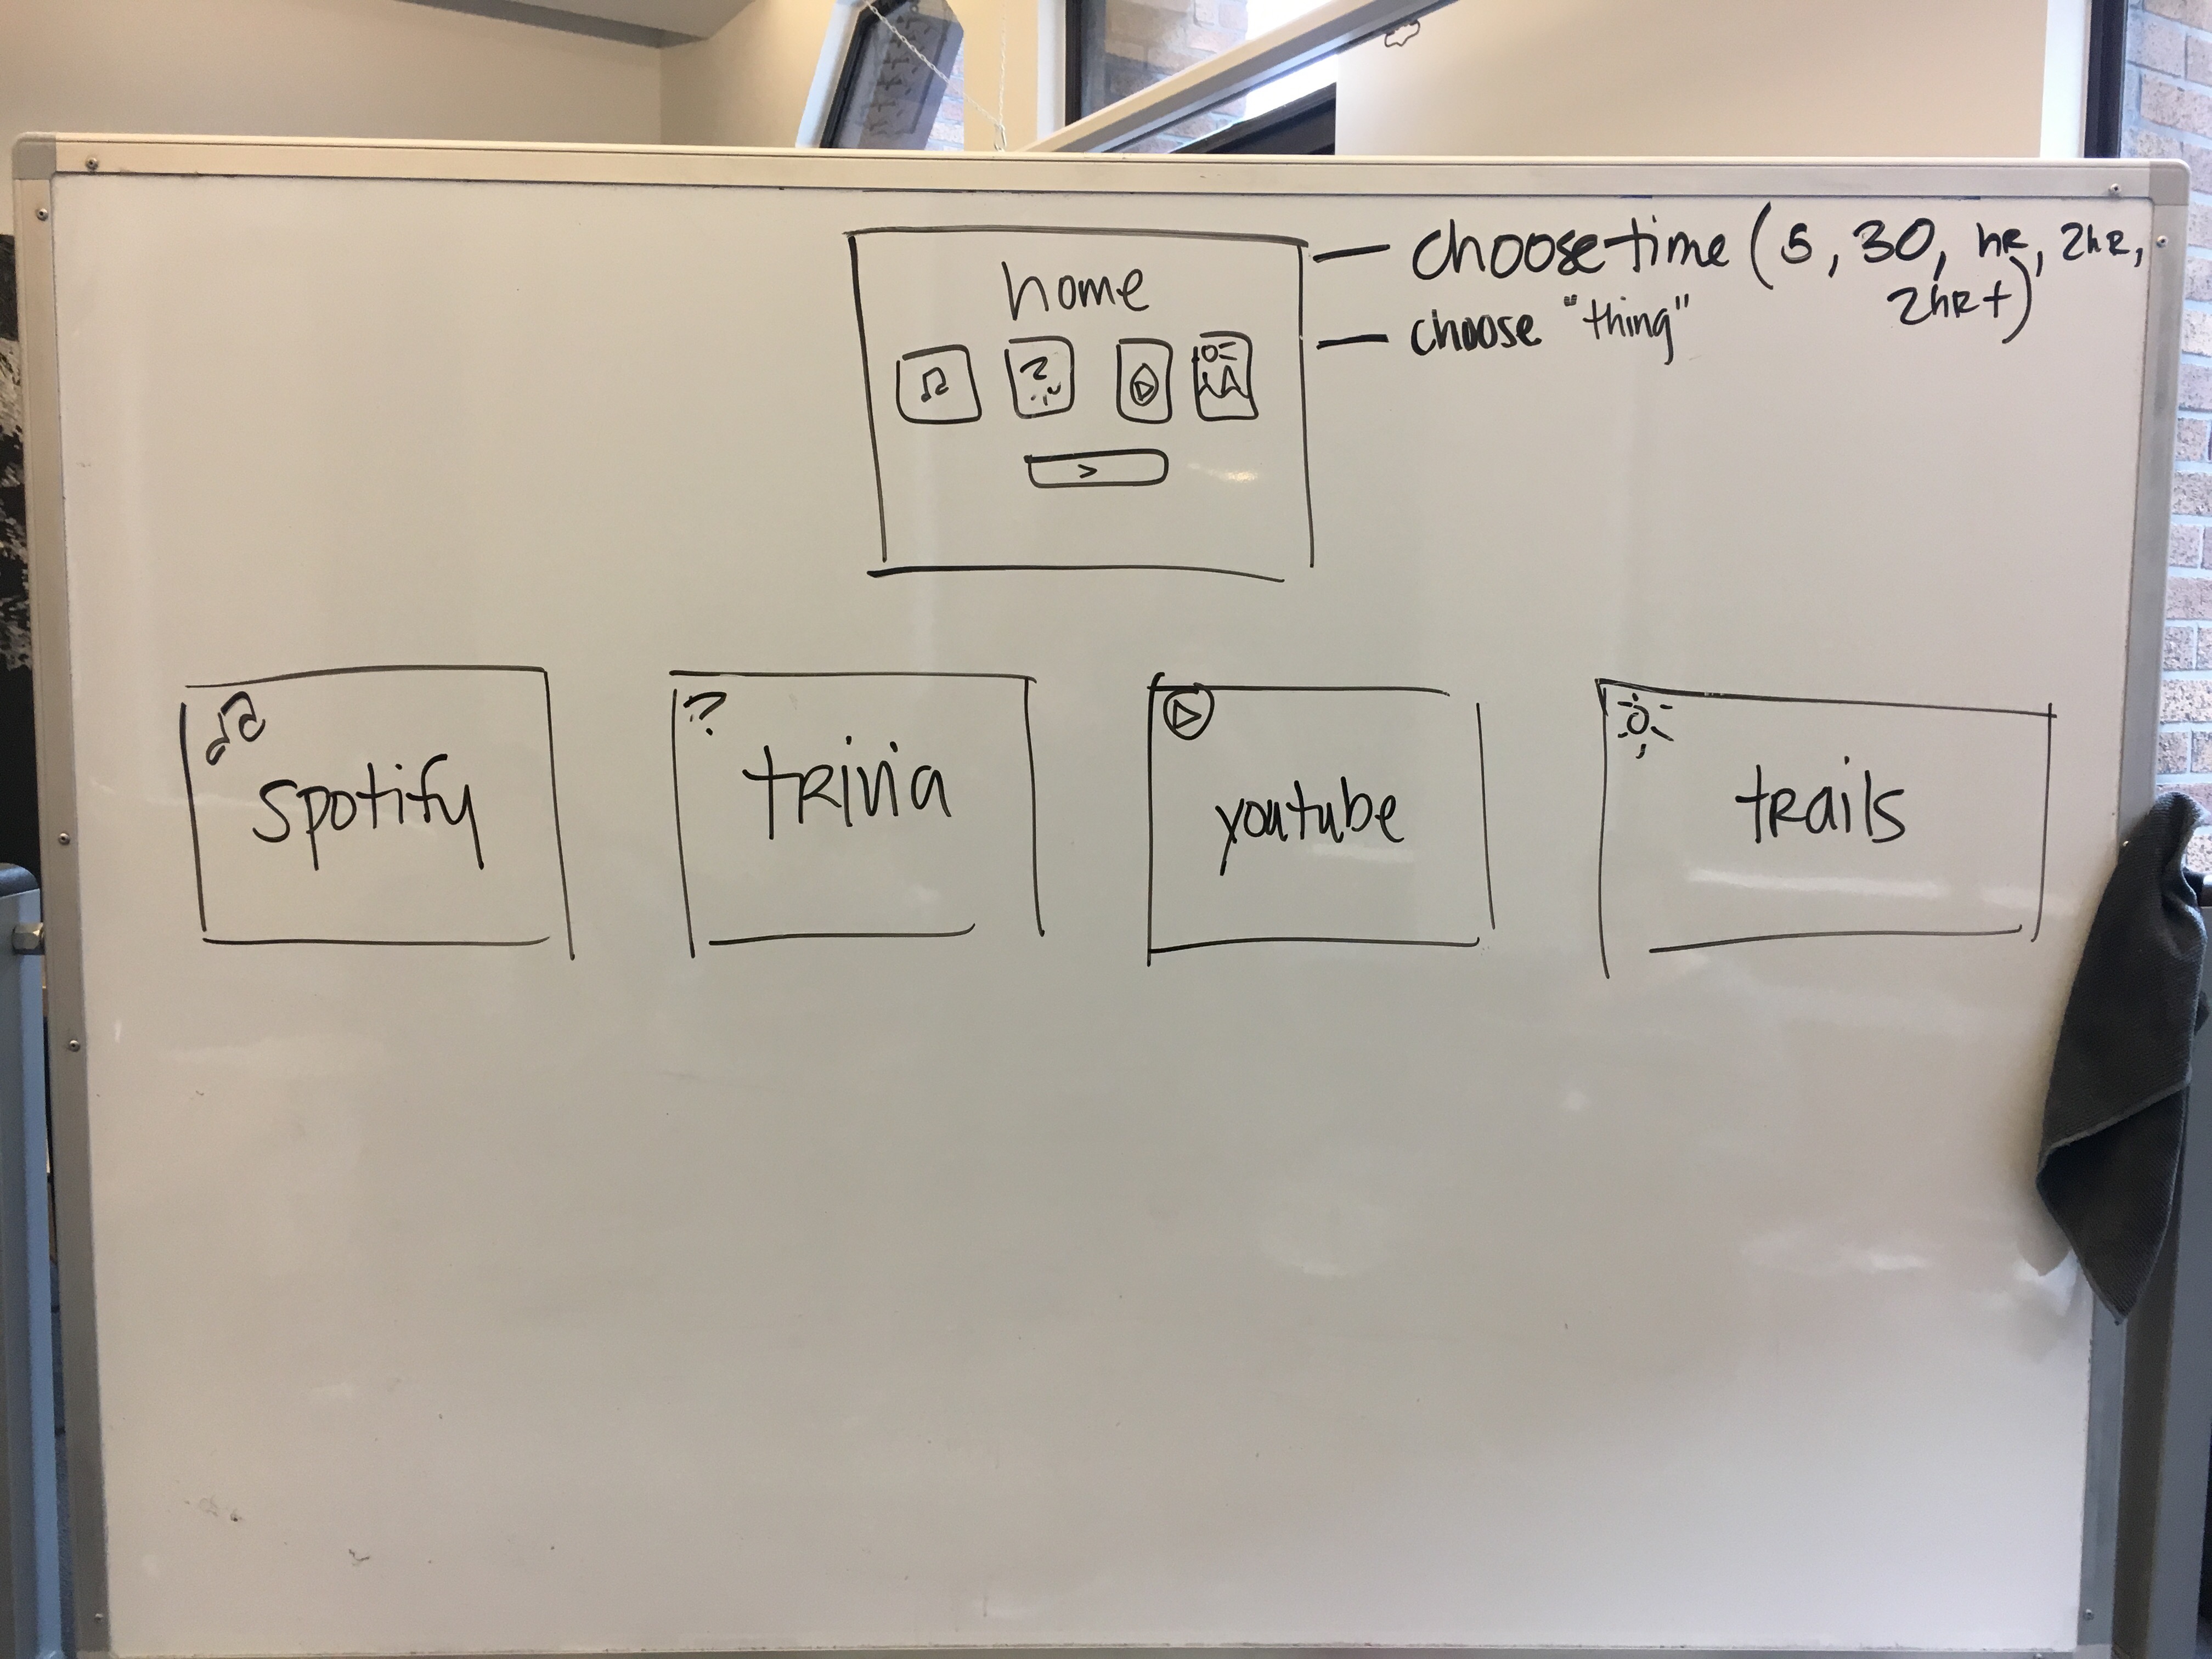 home
choose time (5, 30, hR, 2hR,
2hR+)
choose "thing"
?
>
?
spotify
tRivia
youtube
tRails